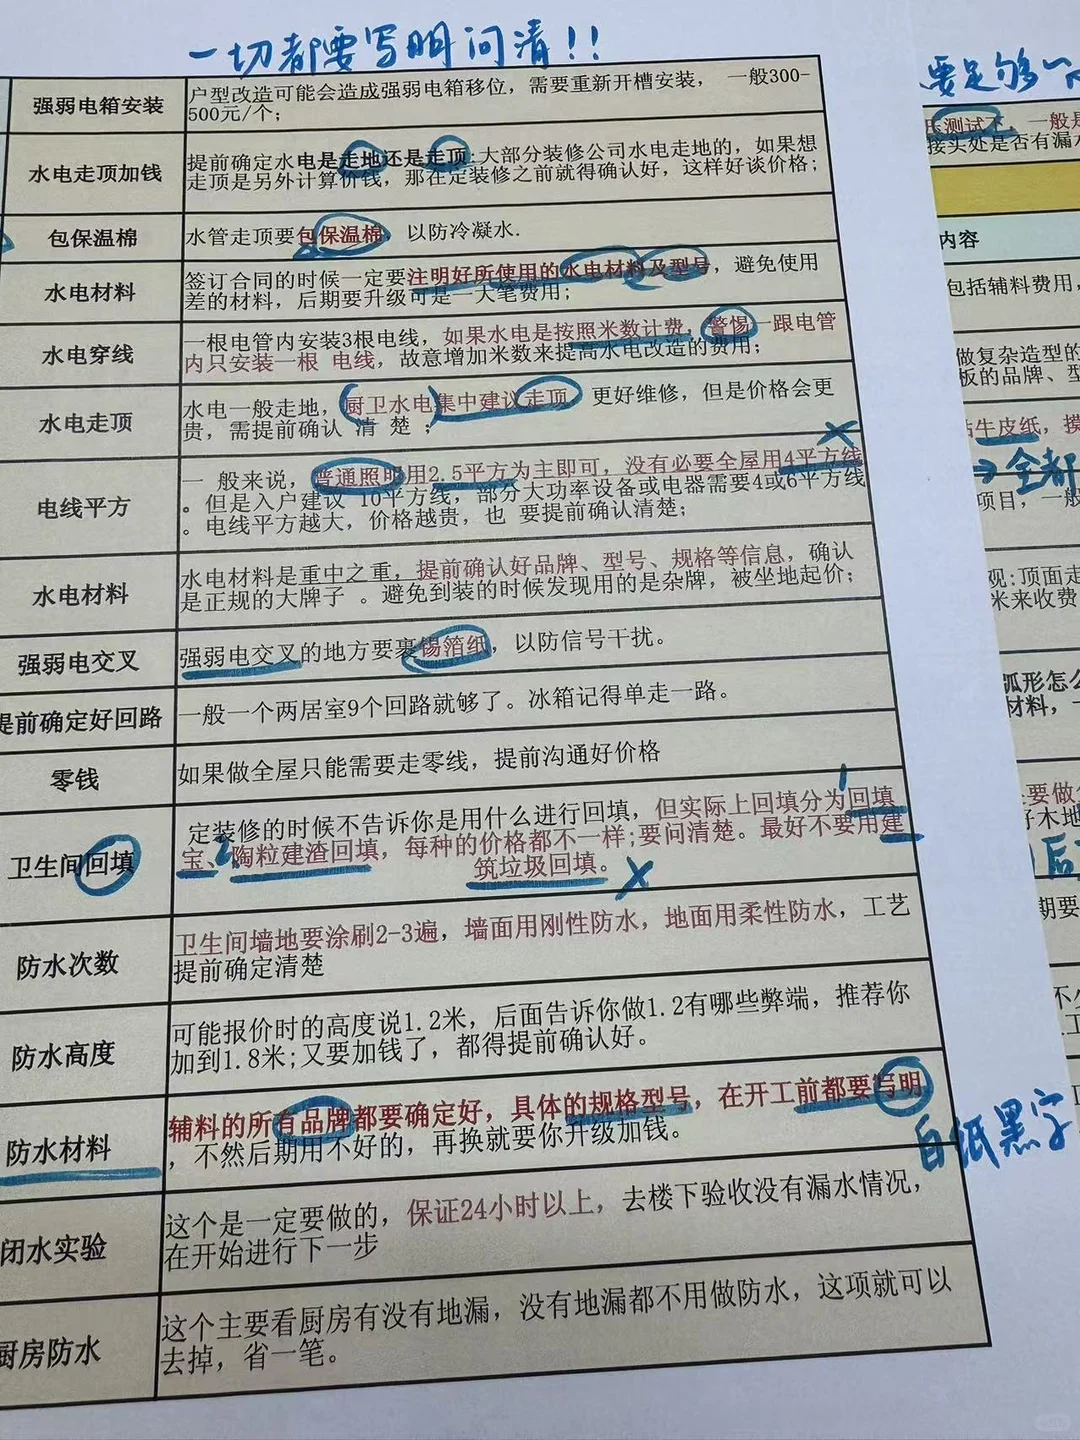 一切都要写明问清!!
强弱电箱安装
户型改造可能会造成强弱电箱移位，需要重新开槽安装， 一般300-
500元/个；
水电走顶加钱
提前确定水电是走地还是走顶:大部分装修公司水电走地的，如果想
走顶是另外计算价钱，那在定装修之前就得确认好，这样好谈价格；
包保温棉
水管走顶要包保温棉，以防冷凝水.
水电材料
签订合同的时候一定要注明好所使用的水电材料及型号，避免使用
差的材料，后期要升级可是一大笔费用；
水电穿线
一根电管内安装3根电线，如果水电是按照米数计费，警惕一跟电管
内只安装一根 电线，故意增加米数来提高水电改造的费用；
水电走顶
水电一般走地，厨卫水电集中建议走顶， 更好维修，但是价格会更
贵，需提前确认 清 楚 ；
电线平方
一 般来说，普通照明用2.5平方为主即可，没有必要全屋用4平方线
。但是入户建议 10平方线，部分大功率设备或电器需要4或6平方线
。电线平方越大，价格越贵，也 要提前确认清楚；
水电材料
水电材料是重中之重，提前确认好品牌、型号、规格等信息，确认
是正规的大牌子 。避免到装的时候发现用的是杂牌，被坐地起价；
强弱电交叉
强弱电交叉的地方要裹锡箔纸，以防信号干扰。
提前确定好回路
一般一个两居室9个回路就够了。冰箱记得单走一路。
零钱
如果做全屋只能需要走零线，提前沟通好价格
卫生间回填
定装修的时候不告诉你是用什么进行回填，但实际上回填分为回填
宝、陶粒建渣回填，每种的价格都不一样;要问清楚。最好不要用建
筑垃圾回填。
防水次数
卫生间墙地要涂刷2-3遍，墙面用刚性防水，地面用柔性防水，工艺
提前确定清楚
防水高度
可能报价时的高度说1.2米，后面告诉你做1.2有哪些弊端，推荐你
加到1.8米;又要加钱了，都得提前确认好。
防水材料
辅料的所有品牌都要确定好，具体的规格型号，在开工前都要写明
，不然后期用不好的，再换就要你升级加钱。
闭水实验
这个是一定要做的，保证24小时以上，去楼下验收没有漏水情况，
在开始进行下一步
厨房防水
这个主要看厨房有没有地漏，没有地漏都不用做防水，这项就可以
去掉，省一笔。
要足够
测试不，一般是
接头处是否有漏水
内容
包括辅料费用，
做复杂造型的
板的品牌、型
牛皮纸，摸
全都
项目，一般
观:顶面走
米来收费
弧形怎么
材料，一
要做
木地
后
期要
白纸黑字